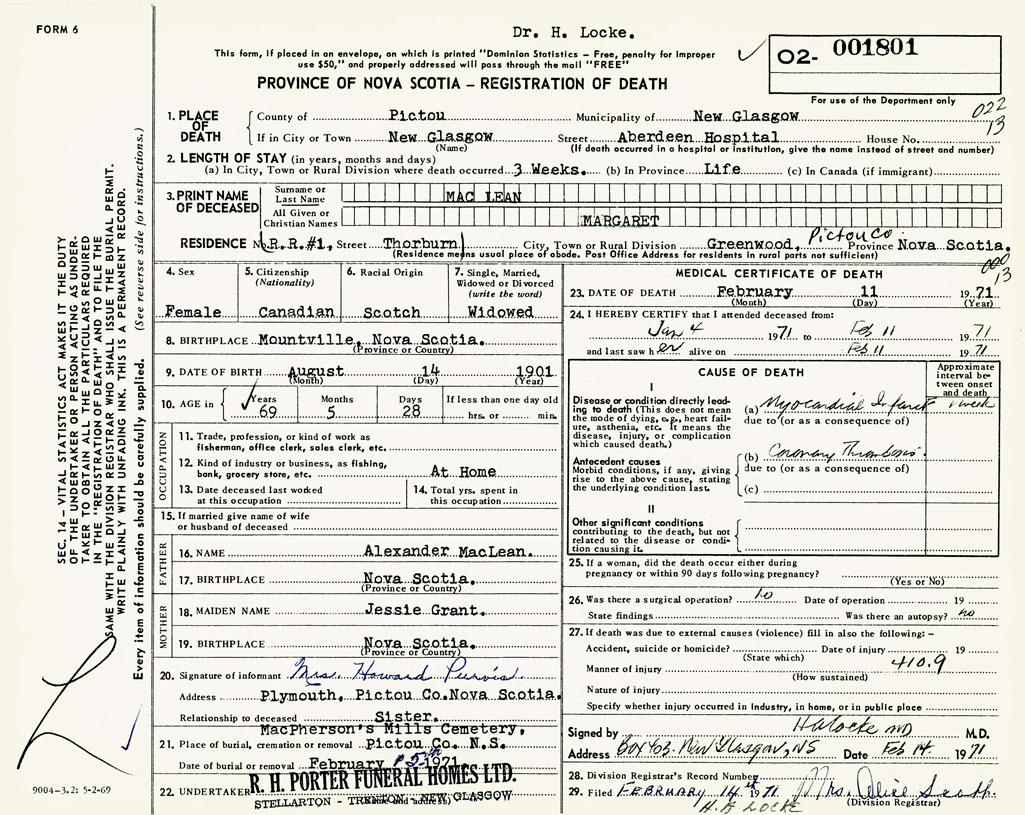 FORM 6
Dr. H. Locke.
This form, if placed in an envelope, on which is printed "Dominion Statistics – Free, penalty for improper
use $50," and properly addressed will pass through the mail "FREE"
PROVINCE OF NOVA SCOTIA – REGISTRATION OF DEATH
O2- 001801
For use of the Department only
022
13
1. PLACE OF DEATH
County of Pictou Municipality of New Glasgow
If in City or Town New Glasgow Street Aberdeen Hospital House No.
(Name) (If death occurred in a hospital or institution, give the name instead of street and number)
2. LENGTH OF STAY (in years, months and days)
(a) In City, Town or Rural Division where death occurred 3 Weeks. (b) In Province Life (c) In Canada (if immigrant)
3. PRINT NAME OF DECEASED
Surname or Last Name MAC LEAN
All Given or Christian Names MARGARET
RESIDENCE No. R.R.#1, Street Thorburn City, Town or Rural Division Greenwood, Pictou Co. Province Nova Scotia.
(Residence means usual place of abode. Post Office Address for residents in rural parts not sufficient)
000
13
4. Sex
Female
5. Citizenship
(Nationality)
Canadian
6. Racial Origin
Scotch
7. Single, Married,
Widowed or Divorced
(write the word)
Widowed
8. BIRTHPLACE Mountville, Nova Scotia.
(Province or Country)
9. DATE OF BIRTH August 14 1901
(Month) (Day) (Year)
10. AGE in Years 69 Months 5 Days 28 If less than one day old
hrs. or min.
OCCUPATION
11. Trade, profession, or kind of work as
fisherman, office clerk, sales clerk, etc.
12. Kind of industry or business, as fishing,
bank, grocery store, etc. At Home
13. Date deceased last worked
at this occupation
14. Total yrs. spent in
this occupation
15. If married give name of wife
or husband of deceased
FATHER
16. NAME Alexander MacLean.
17. BIRTHPLACE Nova Scotia.
(Province or Country)
MOTHER
18. MAIDEN NAME Jessie Grant.
19. BIRTHPLACE Nova Scotia.
(Province or Country)
20. Signature of informant Mrs. Howard Purvis
Address Plymouth, Pictou Co. Nova Scotia.
Relationship to deceased Sister.
MacPherson's Mills Cemetery,
21. Place of burial, cremation or removal Pictou Co. N.S.
Date of burial or removal February 1971.
22. UNDERTAKER R. H. PORTER FUNERAL HOMES LTD.
STELLARTON - TRENTON - NEW GLASGOW
MEDICAL CERTIFICATE OF DEATH
23. DATE OF DEATH February 11 19 71
(Month) (Day) (Year)
24. I HEREBY CERTIFY that I attended deceased from:
Jan 4 1971 to Feb 11 19 71
and last saw her alive on Feb 11 19 71
CAUSE OF DEATH
Approximate
interval be-
tween onset
and death
I
Disease or condition directly lead-
ing to death (This does not mean
the mode of dying, e.g., heart fail-
ure, asthenia, etc. It means the
disease, injury, or complication
which caused death.)
(a) Myocardial Infarct week
due to (or as a consequence of)
Antecedent causes
Morbid conditions, if any, giving
rise to the above cause, stating
the underlying condition last.
(b) Coronary Thrombosis
due to (or as a consequence of)
(c)
II
Other significant conditions
contributing to the death, but not
related to the disease or condi-
tion causing it.
25. If a woman, did the death occur either during
pregnancy or within 90 days following pregnancy?
(Yes or No)
26. Was there a surgical operation? No Date of operation 19
State findings Was there an autopsy? no
27. If death was due to external causes (violence) fill in also the following: –
Accident, suicide or homicide? Date of injury 19
(State which)
Manner of injury 410.9
(How sustained)
Nature of injury
Specify whether injury occurred in Industry, in home, or in public place
Signed by H Locke MD M.D.
Address Box 63. New Glasgow, NS Date Feb 14. 1971
28. Division Registrar's Record Number
29. Filed FEBRUARY 14th 1971 Mrs. Alice Scott.
(Division Registrar)
H. A LOCKE
SEC. 14 – VITAL STATISTICS ACT MAKES IT THE DUTY
OF THE UNDERTAKER OR PERSON ACTING AS UNDER-
TAKER TO OBTAIN ALL THE PARTICULARS REQUIRED
IN THE "REGISTRATION OF DEATH" AND TO FILE THE
SAME WITH THE DIVISION REGISTRAR WHO SHALL ISSUE THE BURIAL PERMIT.
WRITE PLAINLY WITH UNFADING INK. THIS IS A PERMANENT RECORD.
Every item of information should be carefully supplied. (See reverse side for instructions.)
9004-3.2: 5-2-69